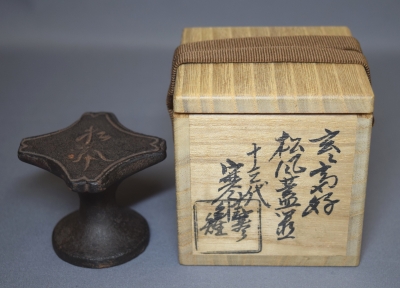 玄々斎好
松風蓋置
十三代
寒雉
松風